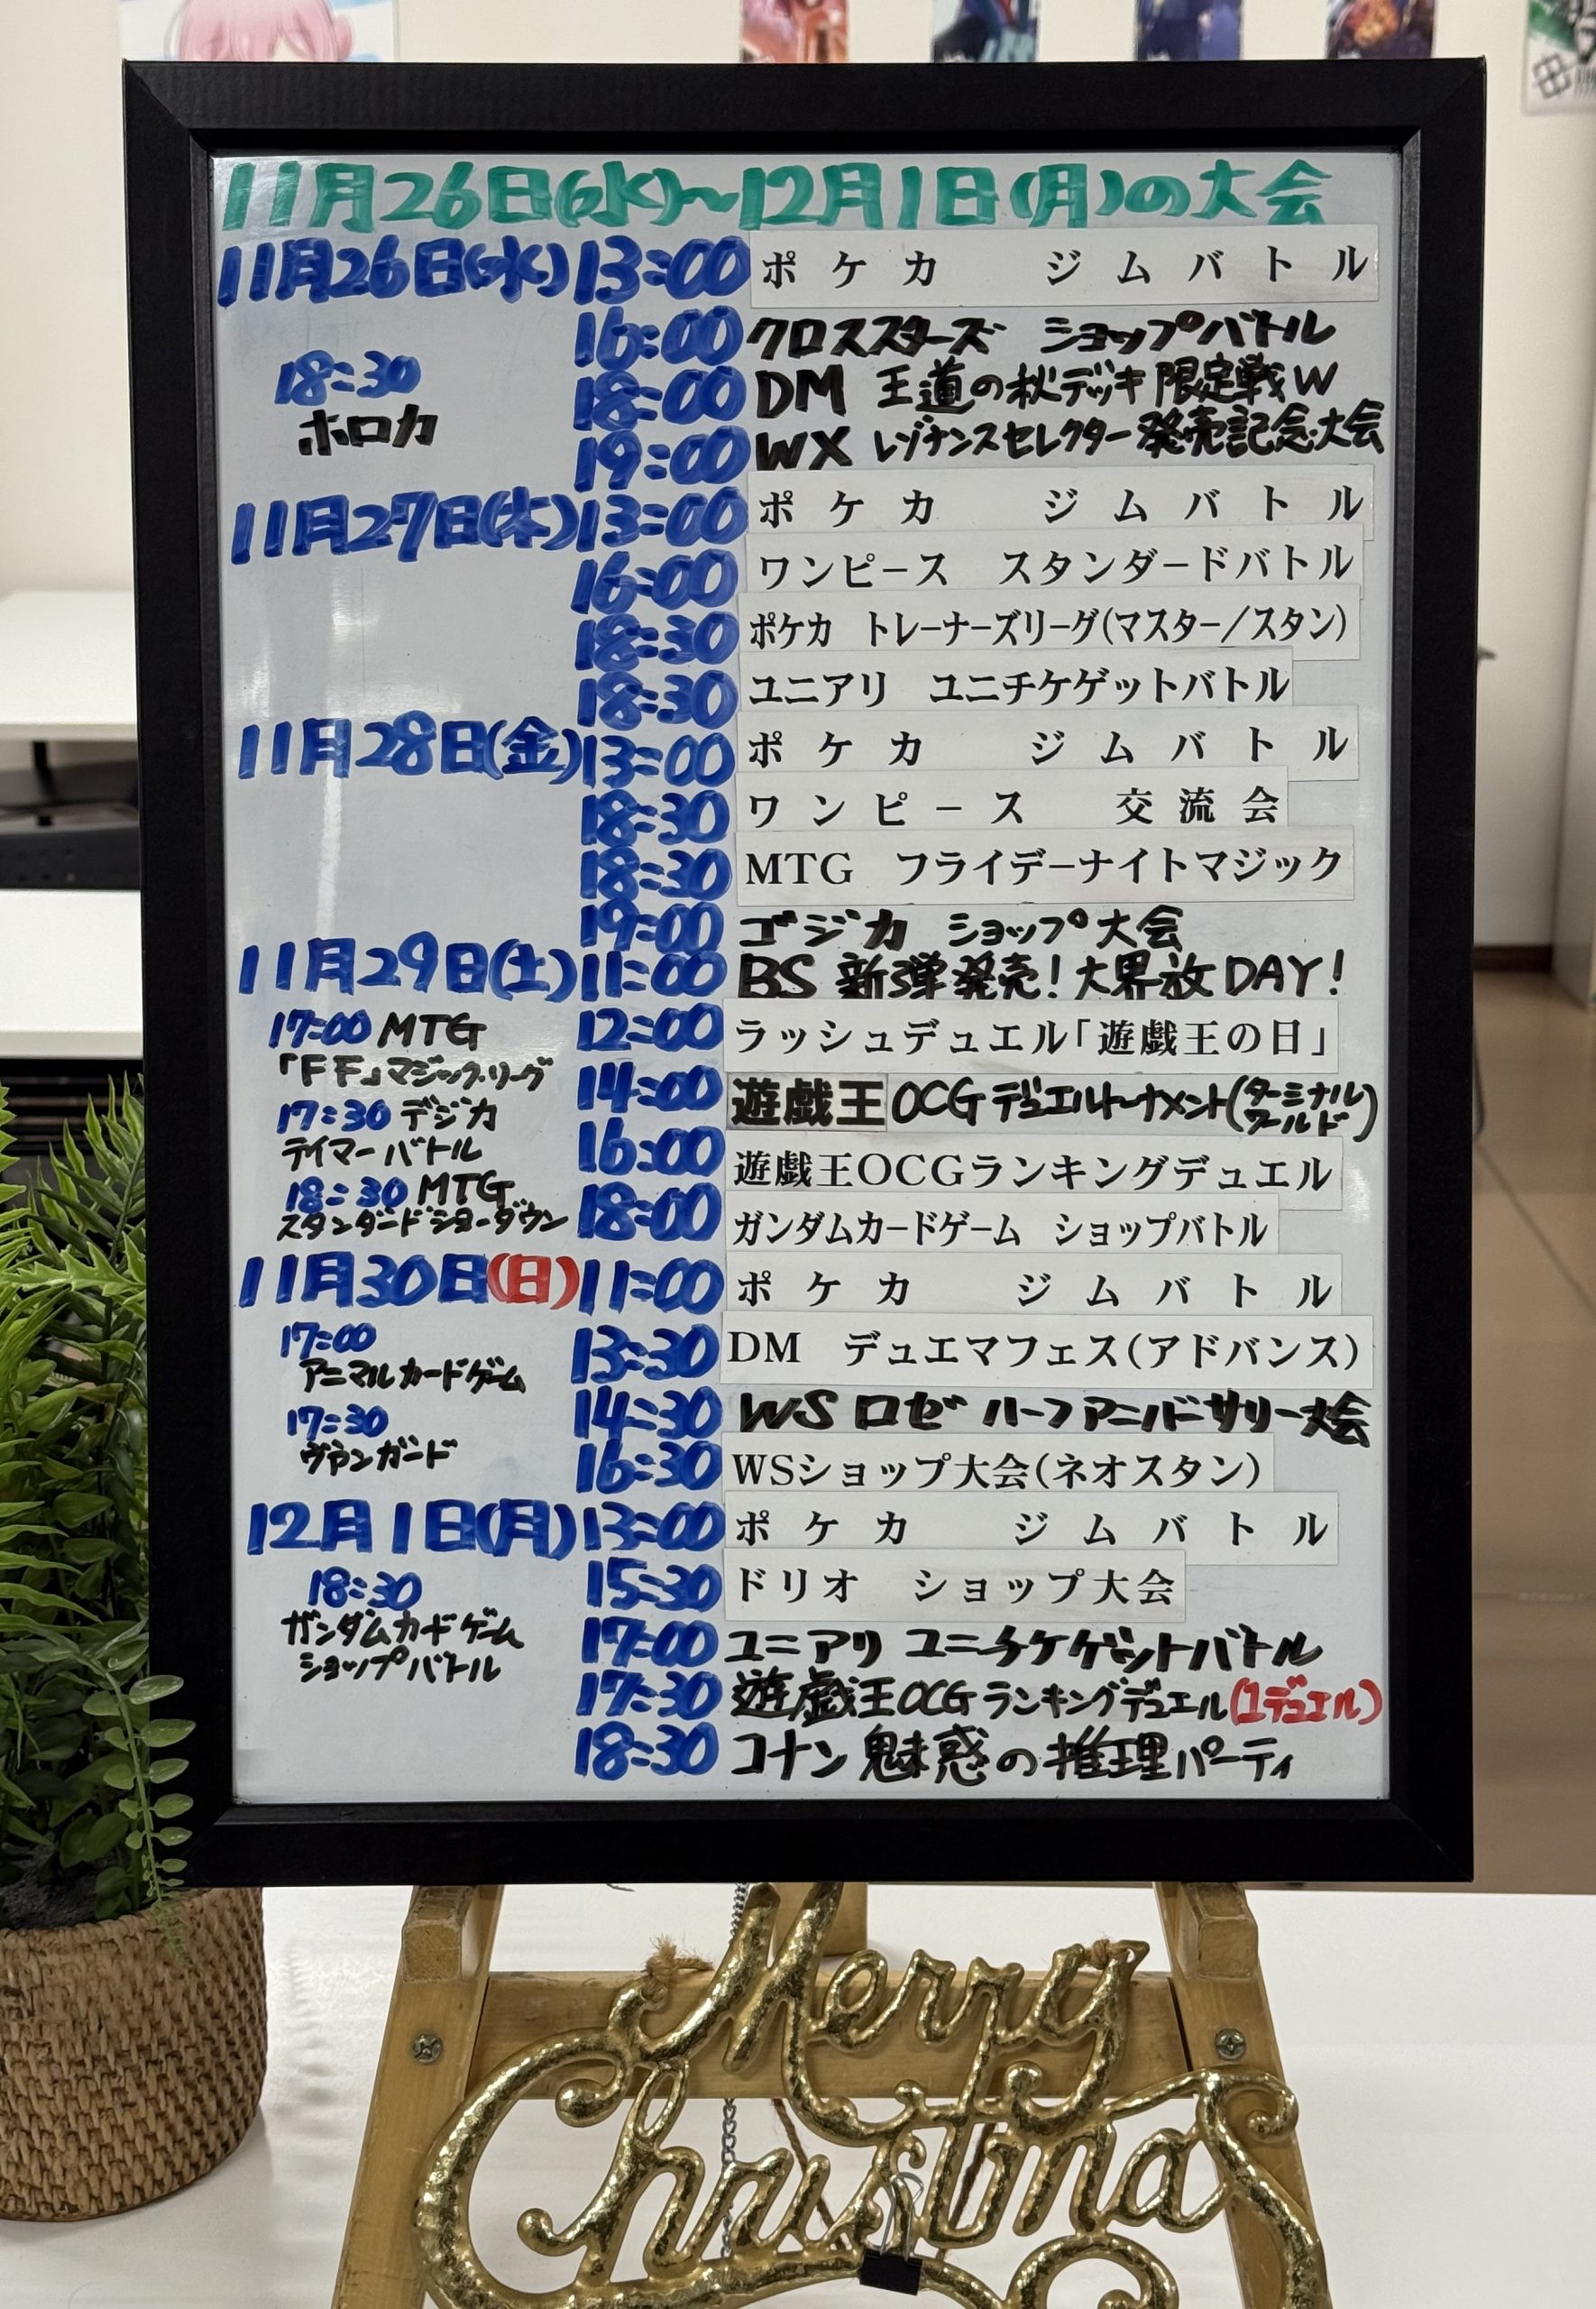 11月26日(水)~12月1日(月)の大会
11月26日(水) 13:00 ポケカ ジムバトル
16:00 クロススターズ ショップバトル
18:00 DM 王道の秋デッキ限定戦W
19:00 WX レゾナンスセレクター発売記念大会
18:30
ホロカ
11月27日(木) 13:00 ポケカ ジムバトル
16:00 ワンピース スタンダードバトル
18:30 ポケカ トレーナーズリーグ(マスター/スタン)
18:30 ユニアリ ユニチケゲットバトル
11月28日(金) 13:00 ポケカ ジムバトル
18:30 ワンピース 交流会
18:30 MTG フライデーナイトマジック
19:00 ゴジカ ショップ大会
11月29日(土) 11:00 BS 新弾発売!大界放DAY!
12:00 ラッシュデュエル「遊戯王の日」
14:00 遊戯王OCGデュエルトーナメント(ターミナルワールド)
16:00 遊戯王OCGランキングデュエル
18:00 ガンダムカードゲーム ショップバトル
17:00 MTG
「FF」マジック・リーグ
17:30 デジカ
テイマーバトル
18:30 MTG
スタンダードショーダウン
11月30日(日) 11:00 ポケカ ジムバトル
13:30 DM デュエマフェス(アドバンス)
14:30 WS ロゼ ハーフアニバーサリー大会
16:30 WSショップ大会(ネオスタン)
17:00
アニマルカードゲーム
17:30
ヴァンガード
12月1日(月) 13:00 ポケカ ジムバトル
15:30 ドリオ ショップ大会
17:00 ユニアリ ユニチケゲットバトル
17:30 遊戯王OCGランキングデュエル(1デュエル)
18:30 コナン 魅惑の推理パーティ
18:30
ガンダムカードゲーム
ショップバトル
Merry
Christmas